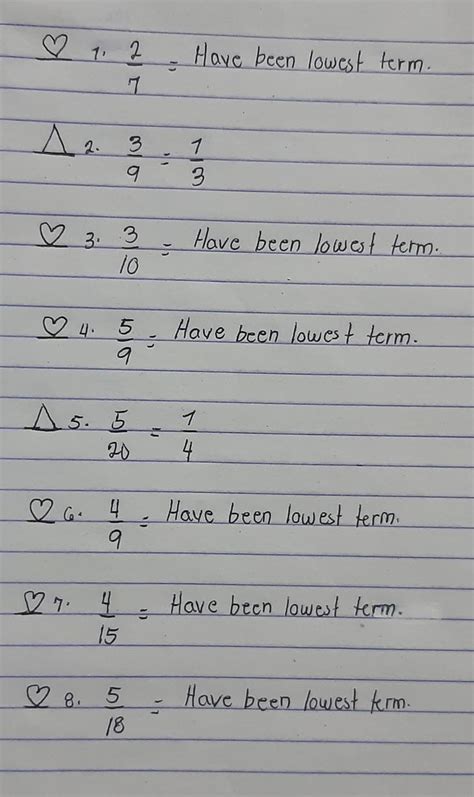 ♡ 1. 2/7 = Have been lowest term.
△ 2. 3/9 = 1/3
♡ 3. 3/10 = Have been lowest term.
♡ 4. 5/9 = Have been lowest term.
△ 5. 5/20 = 1/4
♡ 6. 4/9 = Have been lowest term.
♡ 7. 4/15 = Have been lowest term.
♡ 8. 5/18 = Have been lowest term.